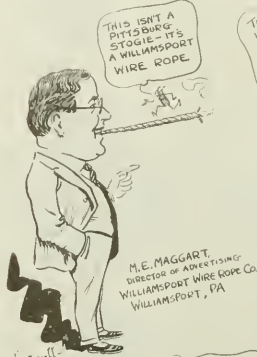 THIS ISN'T A
PITTSBURG
STOGIE - IT'S
A WILLIAMSPORT
WIRE ROPE.
M.E. MAGGART,
DIRECTOR OF ADVERTISING
WILLIAMSPORT WIRE ROPE CO.
WILLIAMSPORT, PA